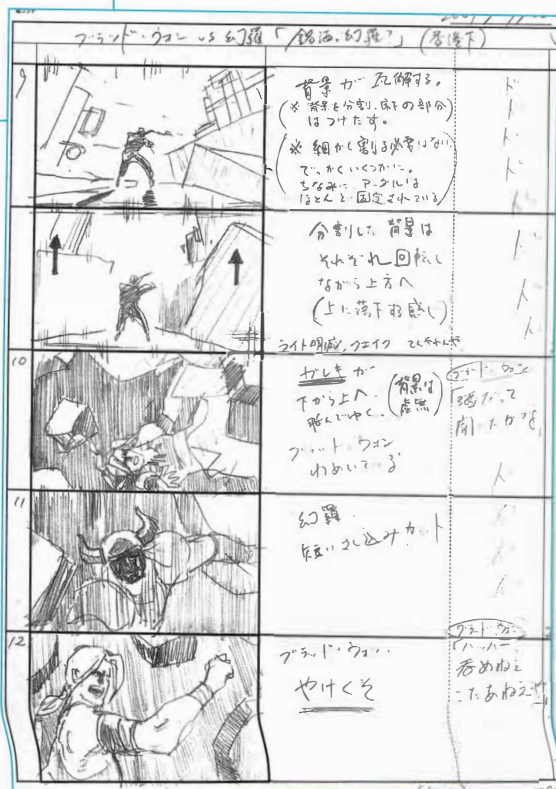 ブラッド・ウォン vs 幻羅
9
背景が 瓦解する。
※ 背景を分割、床下の部分
はつけたす。
※ 細かく割る必要はない
でっかくいくつかに。
ちなみに アングルは
ほとんど固定されている
ド
ド
ド
ド
分割した 背景は
それぞれ 回転し
ながら上方へ
(上に落下する感じ)
ライト明滅、ウエイク てんやわんや
ド
10
ガレキが
下から上へ
飛んでゆく。
(背景は
虚無)
ブラッド ウォン
わめいてる
ブラッド ウォン
11
幻羅
短いさし込みカット
12
ブラッド・ウォン
やけくそ
ブラッド・ウォン
呑めねェ